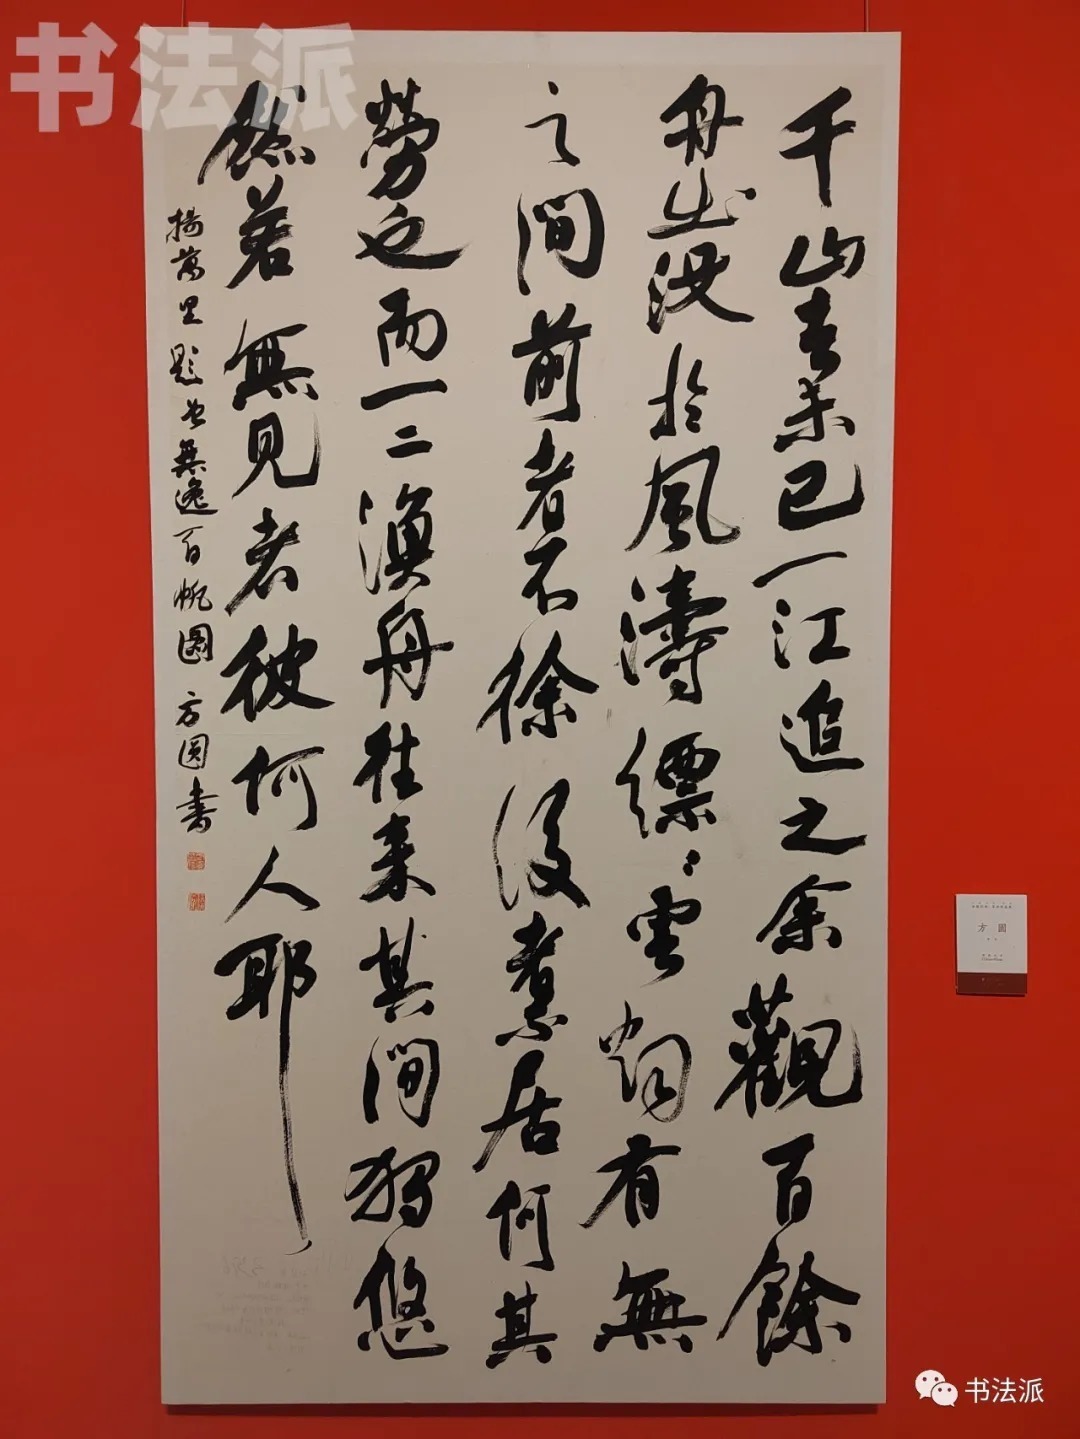 书法派
千山去未已一江追之余觀百餘
舟出没於風濤縹〻雲烟有無
之間前者不徐後居何其
勞也而一二漁舟往来其間獨悠
然若無見者彼何人耶
楊萬里題曾無逸百帆圖 方圓書
方圆
书法派